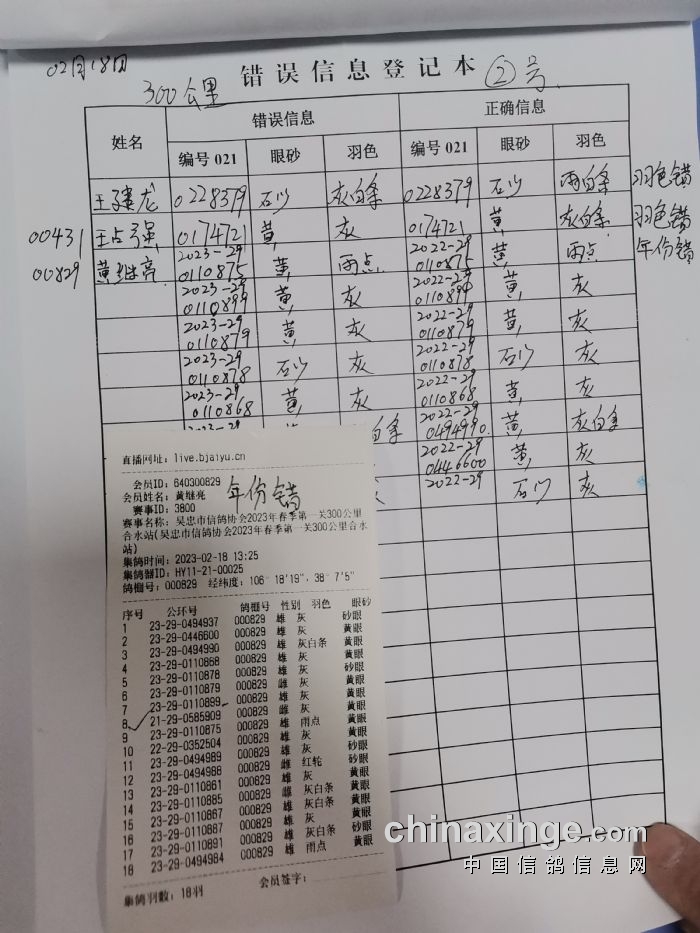 02月18日
300公里 错误信息登记本 ②号
姓名 错误信息 正确信息
编号021 眼砂 羽色 编号021 眼砂 羽色
0228379 石少 灰白条 0228379 石少 雨白条 羽色错
00431 0174721 黄 灰 0174721 黄 灰白条 羽色错
00829 黄继亮 2023-29 0110875 黄 雨点 2022-29 0110875 黄 雨点 年份错
2023-29 0110899 黄 灰 2022-29 0110899 黄 灰
2023-29 0110879 黄 灰 2022-29 0110879 黄 灰
2023-29 0110878 石少 灰 2022-29 0110878 石少 灰
2023-29 0110868 黄 灰 2022-29 0110868 黄 灰
白条 2022-29 0494990 黄 灰白条
2022-29 0446600 黄 灰
2022-29 石少 灰
直播网址: live.bjaiyu.cn
会员ID: 640300829
会员姓名: 黄继亮
年份错
赛事ID: 3800
赛事名称: 吴忠市信鸽协会2023年春季第一关300公里
合水站(吴忠市信鸽协会2023年春季第一关300公里合水
站)
集鸽时间: 2023-02-18 13:25
集鸽器ID: HY11-21-00025
鸽棚号: 000829 经纬度: 106°18'19", 38°7'5"
序号 公环号 鸽棚号 性别 羽色 眼砂
1 23-29-0494937 000829 雄 灰 砂眼
2 23-29-0446600 000829 雄 灰 黄眼
3 23-29-0494990 000829 雄 灰白条 黄眼
4 23-29-0110868 000829 雄 灰 黄眼
5 23-29-0110878 000829 雄 灰 砂眼
6 23-29-0110879 000829 雌 灰 黄眼
7 23-29-0110899 000829 雄 灰 黄眼
8 21-29-0585909 000829 雌 灰 黄眼
9 23-29-0110875 000829 雄 雨点 黄眼
10 22-29-0352504 000829 雄 灰 黄眼
11 23-29-0494989 000829 雄 灰 砂眼
12 23-29-0494988 000829 雌 红轮 黄眼
13 23-29-0110861 000829 雄 灰 黄眼
14 23-29-0110885 000829 雌 灰白条 黄眼
15 23-29-0110867 000829 雄 灰白条 黄眼
16 23-29-0110887 000829 雄 灰 黄眼
17 23-29-0110891 000829 雄 灰白条 砂眼
18 23-29-0494984 000829 雄 雨点 黄眼
集鸽羽数: 18羽 会员签字:
chinaxinge.com
中国信鸽信息网